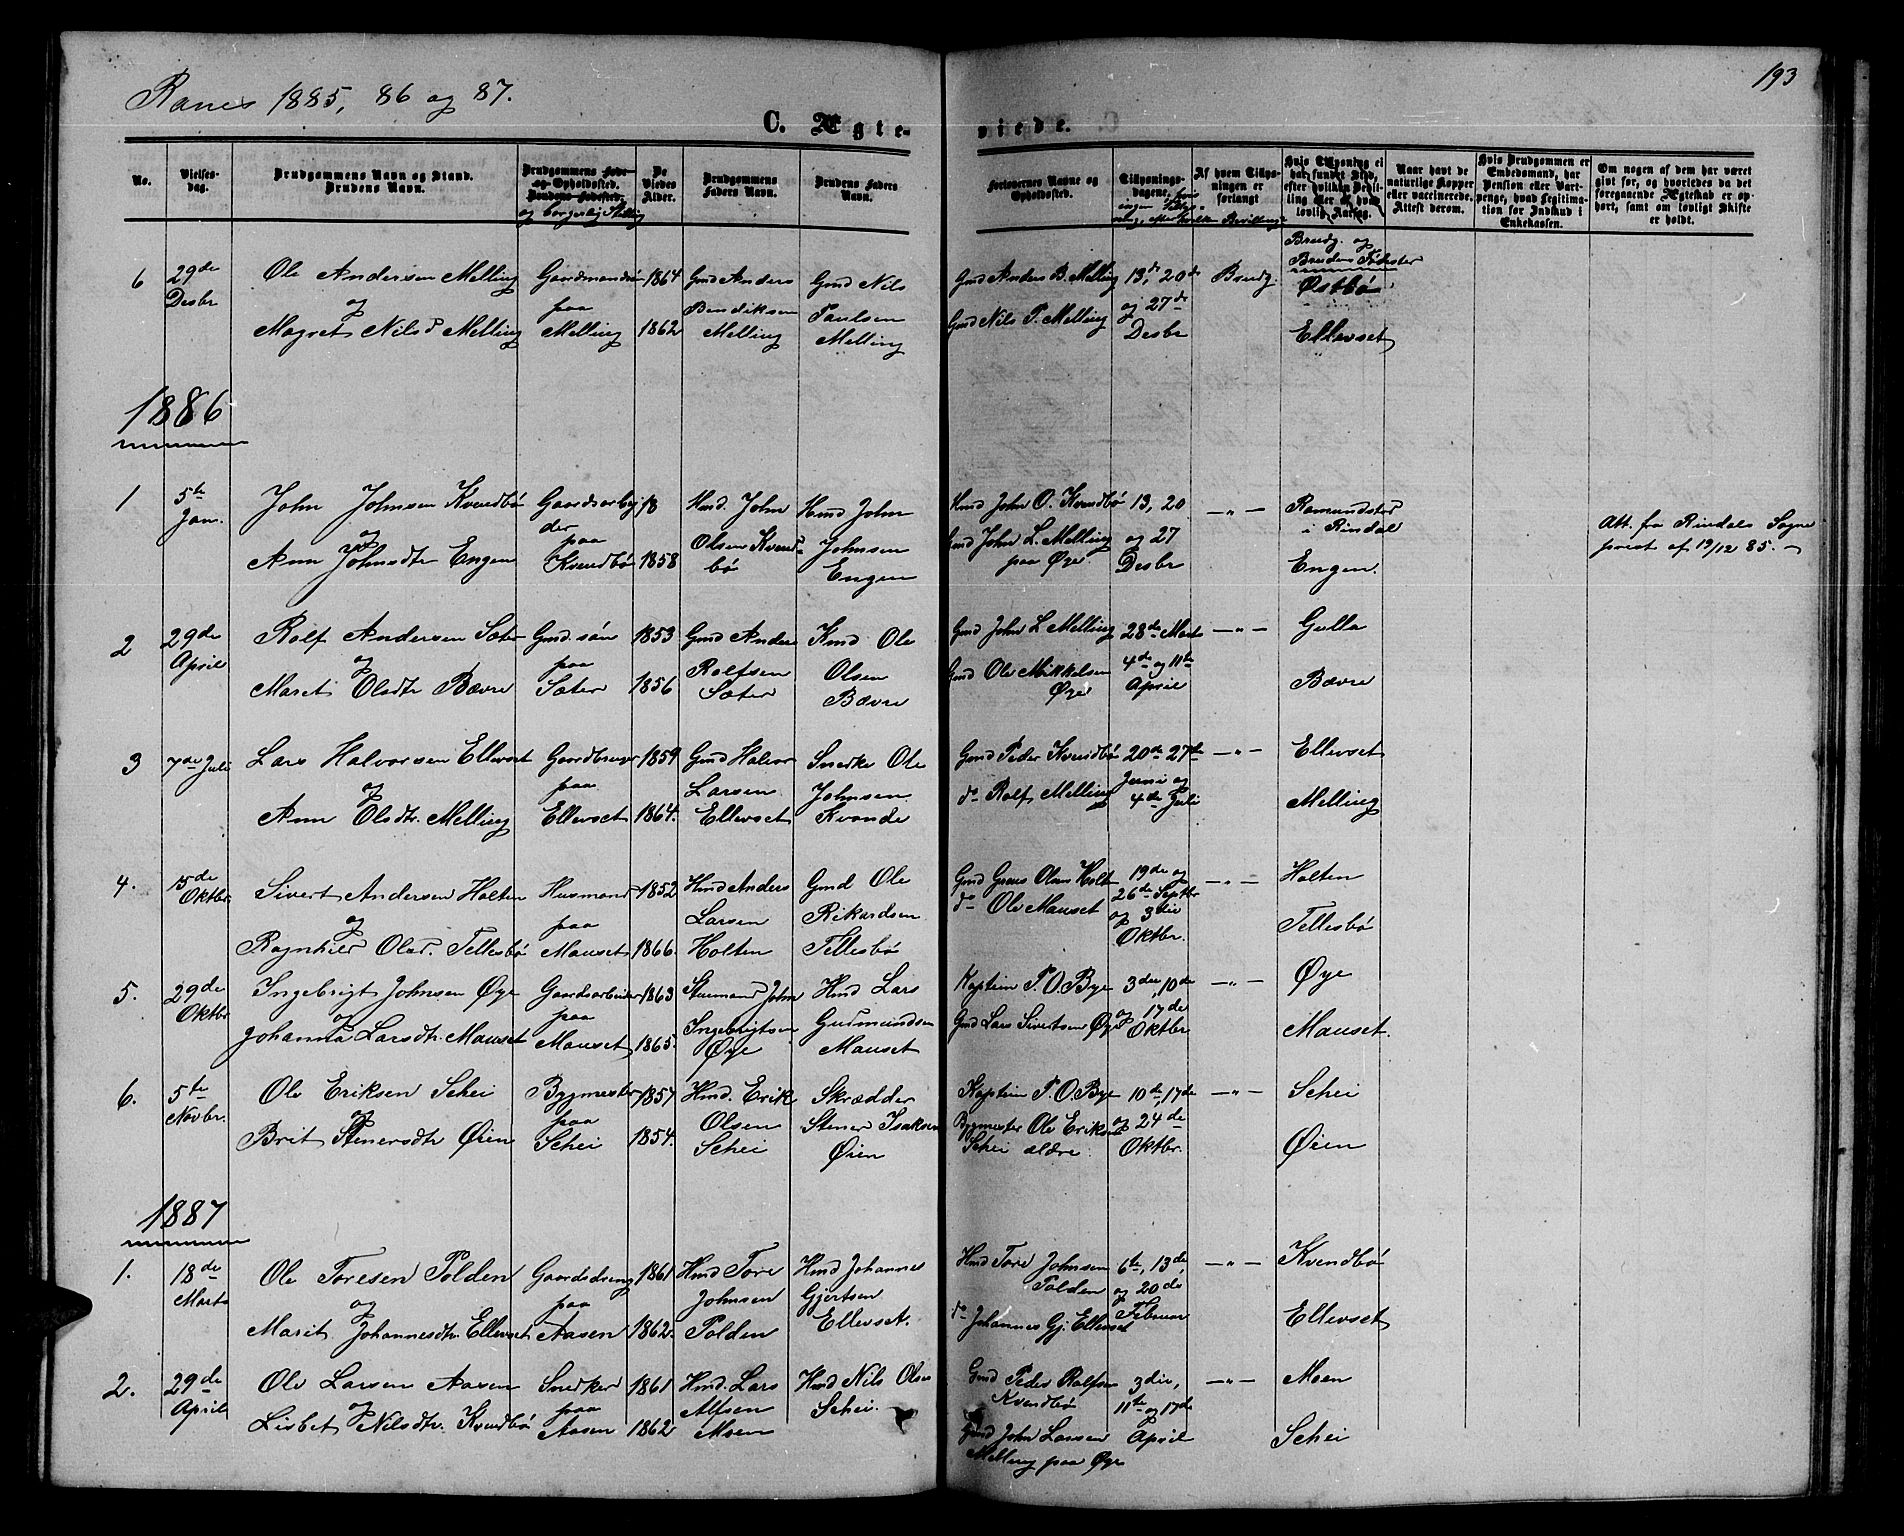 Ranes 1885, 86 og 87.
193
C. Ægte-
viede.
No.
Vielses-
dag.
Brudgommens Navn og Stand.
Brudens Navn.
Brudgommens Føde-
og Opholdssted.
Brudens Fødested.
og borgerlig Stilling
De
Viedes
Alder.
Brudgommens
Faders Navn.
Brudens Faders
Navn.
Forlovernes Navne og
Opholdssted.
Tillysnings-
dagene,
Af hvem Tillys-
ningen er
forlangt
Hvis Tillysning ei
har fundet Sted,
efter hvilken Bevil-
ling eller af hvad
lovlig Aarsag.
Brudg. og
Brudens Fødester
Naar havt de
naturlige Kopper
eller vaccinerede.
Attest derom.
Hvis Brudgommen er
Embedsmand, har
Pension eller Vart-
penge, hvad Legitima-
tion for Indskud i
Enkekassen.
Om nogen af dem har været
gift før, og hvorledes da det
foregaaende Ægteskab er op-
hørt, samt om lovligt Skifte
er holdt.
6
29de
Desbr
Ole Andersen Melling
og
Magret Nilsd Melling
Gaardmandsøn
paa
Melling
1864
1862
Gmd Anders
Bendiksen
Melling
Gmd Nils
Paulsen
Melling
Gmd Anders B. Melling
Gmd Nils P. Melling
13de, 20de
og 27de
Desbr
Brudg.
Østbø
Ellevset
1886
1
5te
Jan.
John Johnsen Kvendbø
og
Ann Johnsdtr Engen
Gaardsarbej
der
paa
Kvendbø
18
1858
Hmd. John
Olsen Kvend-
bø
Hmd John
Johnsen
Engen
Hmd John O. Kvendbø
Gmd John L. Melling
paa Øye
13, 20
og 27
Desbr
— „ —
Romundstad
i Rindal
Engen.
Att. fra Rindals Sogne
prest af 19/12 85.
2
29de
April
Rolf Andersen Sæter
og
Marit Olsdtr Bævre
Gmd. søn
paa
Sæter
1853
1856
Gmd Anders
Rolfsen
Sæter
Kmd Ole
Olsen
Bævre
Gmd John L Melling
Gmd Ole Mikkelsen
Øye
28de Marts
4de og 11te
April
— „ —
Gulla
Bævre
3
7de Juli
Lars Halvorsen Ellevset
og
Ann Olsdtr. Melling
Gaardbruger
paa
Ellevset
1859
1864.
Gmd Halvor
Larsen
Ellevset
Snedke Ole
Johnsen
Kvande
Gmd Peder Kvendbø
do Rolf Melling
20de 27de
Juni og
4de Juli
— „ —
Ellevset
Melling
4.
15de
Oktbr.
Sivert Andersen Holten
og
Ragnhild Olsd. Tellesbø
Husmand
paa
Mauset
1852
1866.
Hmd Anders
Larsen
Holten
Gmd Ole
Rikardsen
Tellesbø
Gmd Olaus Holt
do Ole Mauset
19de og
26de Septbr
og 3die
Oktbr.
— „ —
Holten
Tellesbø
5.
29de
Oktbr.
Ingebrigt Johnsen Øye
og
Johanna Larsdtr. Mauset
Gaardsarbeider
paa
Mauset
1863
1865.
John
Ingebrigtsen
Øye
Hmd Lars
Gudmundsen
Mauset
Kaptein P. O. Bye
Gmd Lars Sivertsen Øye
3die, 10de
og 17de
Oktbr.
— „ —
Øye
Mauset.
6.
5te
Novbr.
Ole Eriksen Schei
og
Brit Stenersdtr Øien
Bygmester
paa
Schei
1857
1854.
Hmd. Erik
Olsen
Schei
Skrædder
Stener Isaksen
Øien
Kaptein P. O. Bye
Bygmester Ole Eriksen
Schei ældre
10de, 17de
og 24de
Oktbr.
— „ —
Schei
Øien
1887
1.
18de
Marts
Ole Toresen Polden
og
Marit Johannesdtr Ellevset
Gaardsdreng
paa
Aasen
1861
1862.
Hmd Tore
Johnsen
Polden
Hmd Johannes
Gjertsen
Ellevset.
Hmd Tore Johnsen
Polden
do Johannes Gj. Ellevset
6te, 13de,
og 20de
Februar
— „ —
Kvendbø
Ellevset
2.
29de
April
Ole Larsen Aasen
og
Lisbet Nilsdtr. Kvendbø
Snedker
paa
Aasen
1861
1862
Hmd. Lars
Alfsen
Moen
Hmd Nils Olsen
Schei.
Gmd Peder Rolfsen
Kvendbø
Gmd John Larsen
Melling paa Øye
3die,
11te og 17de
April
— „ —
Moen
Schei